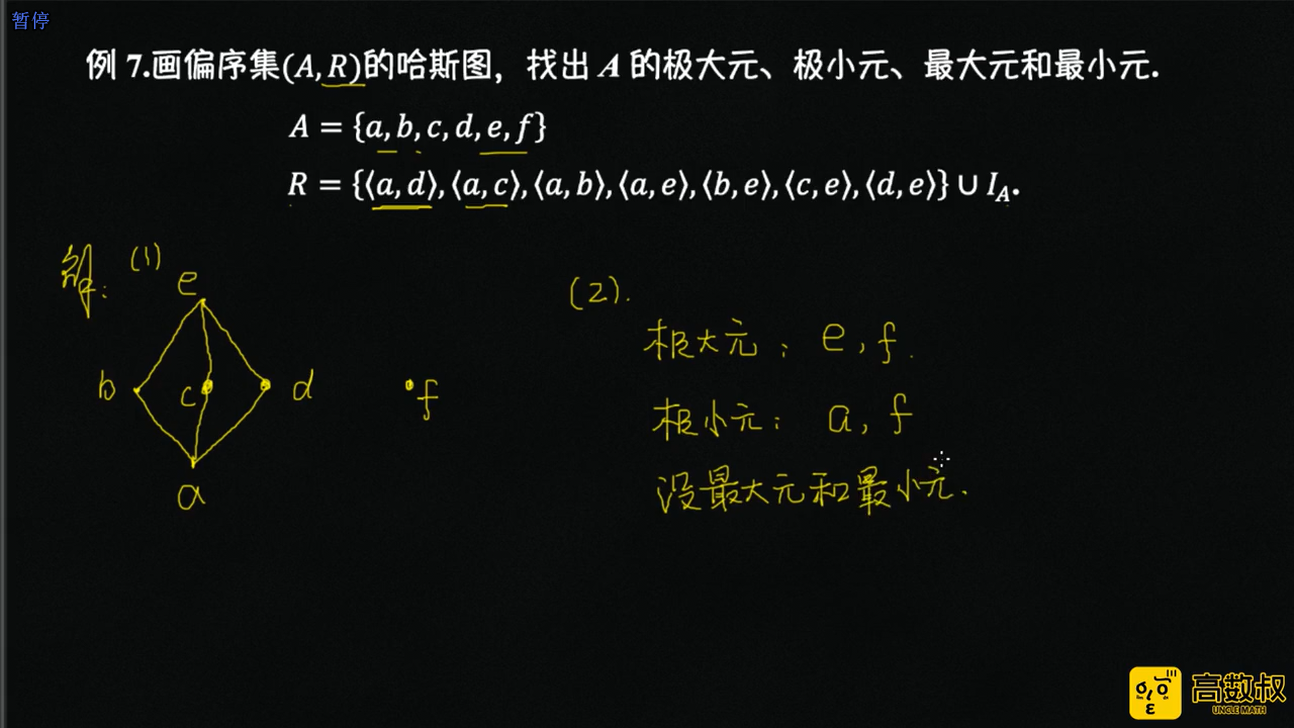 暂停
例 7.画偏序集(A,R)的哈斯图，找出 A 的极大元、极小元、最大元和最小元.
A = {a, b, c, d, e, f}
R = {⟨a, d⟩, ⟨a, c⟩, ⟨a, b⟩, ⟨a, e⟩, ⟨b, e⟩, ⟨c, e⟩, ⟨d, e⟩} ∪ I_A.
解: (1)
e
b c d f
a
(2).
极大元: e, f.
极小元: a, f
没最大元和最小元.
高数叔
UNCLE MATH